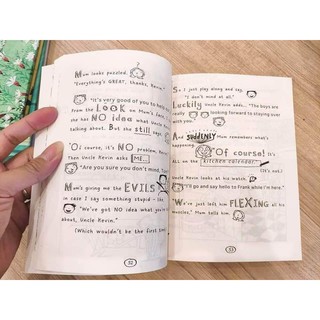 Mum looks puzzled.
"Everything's GREAT, thanks, Kevin."
"It's very good of you to help
From the LOOK on Mum's face,
she has NO idea what
talking about. But she still
"Of course, it's NO problem, Kevin.
Then Uncle Kevin asks ME...
"Are you sure you don't mind, Tom
Mum's giving me the EVILS
in case I say something stupid - like
"We've got NO idea what you're
about, Uncle Kevin."
(Which wouldn't be the first
52
So I just play along and say,
"I don't mind at all."
Luckily Uncle Kevin adds... "The boys are
really looking forward to staying over
with you."
And SUDDENLY Mum remembers what's
happening.
"Of course! It's
ALL on the kitchen calendar."
(It's not)
Uncle Kevin looks at his watch.
go and say hello to Frank while I'm here."
"We've just left him FLEXING all his
muscles," Mum tells him.
53